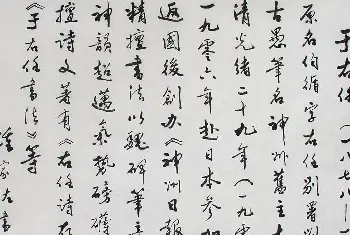 于右任(一八七八—一
原名伯循字右任别署
古愚筆名神州舊主
清光緒二十九年(一九零
一九零六年赴日本参加
返國後創办《神州日報
精擅書法以魏碑筆
神韻超邁氣勢磅礴
擅詩文著有《右任詩存
《于右任書法》等
家左書